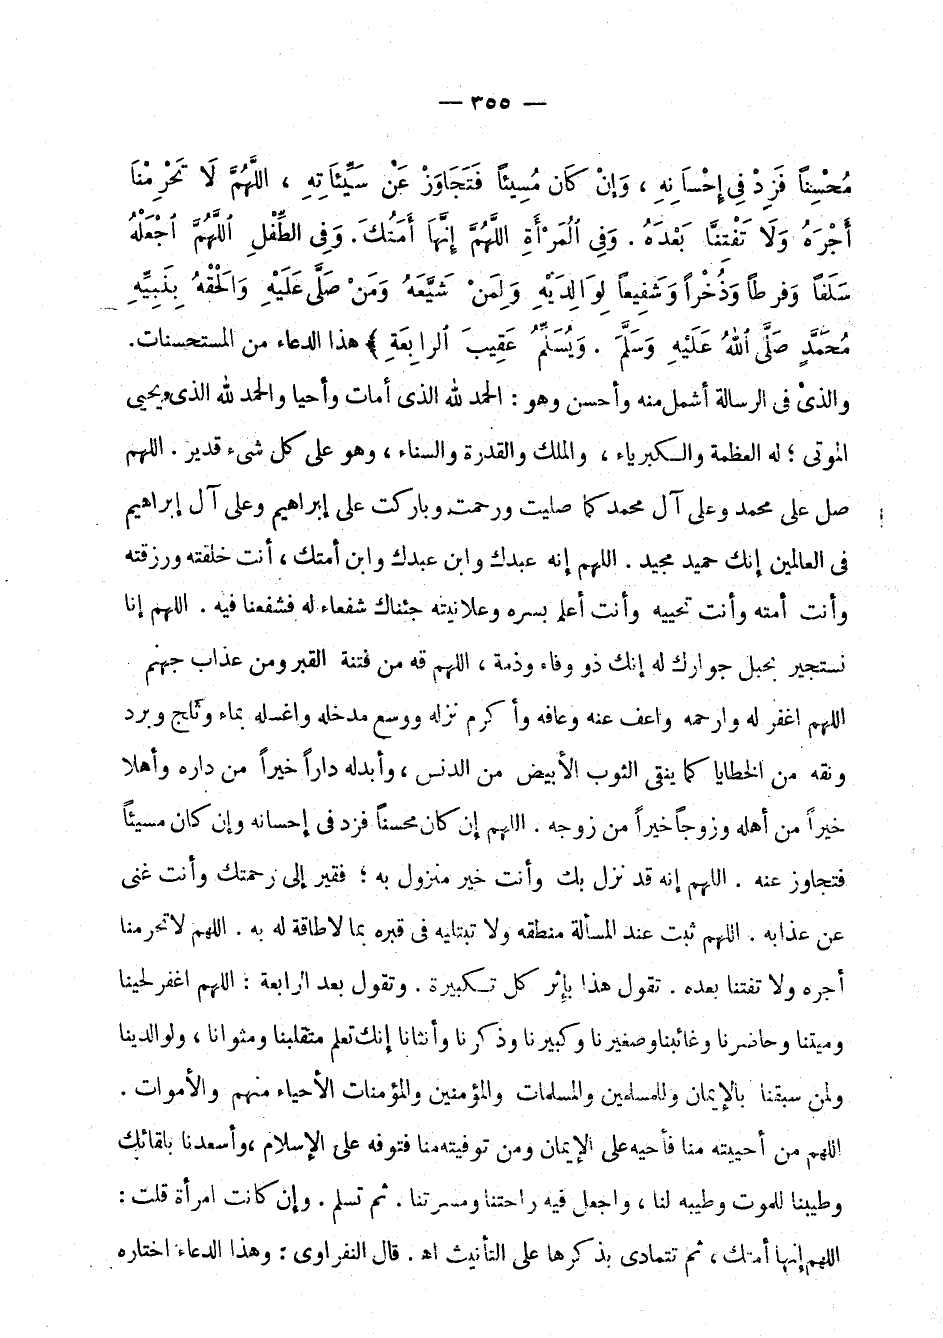 — ٣٥٥ —
مُحْسِناً فَزِدْ فِى إِحْسَانِهِ ، وَإِنْ كَانَ مُسِيئاً فَتَجَاوَزْ عَنْ سَيِّئَاتِهِ ، اللَّهُمَّ لَا تَحْرِمْنَا
أَجْرَهُ وَلَا تَفْتِنَّا بَعْدَهُ . وَفِى ٱلْمَرْأَةِ اللَّهُمَّ إِنَّهَا أَمَتُكَ . وَفِى الطِّفْلِ ٱللَّهُمَّ ٱجْعَلْهُ
سَلَفاً وَفَرطاً وَذُخْراً وَشَفِيعاً لِوَالِدَيْهِ وَلِمَنْ شَيَّعَهُ وَمَنْ صَلَّى عَلَيْهِ وَالْحَقْهُ بِنَبِيِّهِ
مُحَمَّدٍ صَلَّى ٱللهُ عَلَيْهِ وَسَلَّمَ . وَيُسَلِّمُ عَقِيبَ ٱلرابِعَةِ ﴾ هذا الدعاء من المستحسنات.
والذىْ فى الرسالة أشمل منه وأحسن وهو : الحمد لله الذى أمات وأحيا والحمد لله الذى يحيى
الموتى ؛ له العظمة والكبرياء ، والملك والقدرة والسناء ، وهو على كل شىء قدير . اللهم
صل على محمد وعلى آل محمد كما صليت ورحمت وباركت على إبراهيم وعلى آل إبراهيم
فى العالمين إنك حميد مجيد . اللهم إنه عبدك وابن عبدك وابن أمتك ، أنت خلقته ورزقته
وأنت أمته وأنت تحييه وأنت أعلم بسره وعلانيته جئناك شفعاء له فشفعنا فيه . اللهم إنا
نستجير بحبل جوارك له إنك ذو وفاء وذمة ، اللهم قه من فتنة القبر ومن عذاب جهنم
اللهم اغفر له وارحمه واعف عنه وعافه وأكرم نزله ووسع مدخله واغسله بماء وثلج وبرد
ونقه من الخطايا كما ينقى الثوب الأبيض من الدنس ، وأبدله داراً خيراً من داره وأهلا
خيراً من أهله وزوجاً خيراً من زوجه . اللهم إن كان محسناً فزد فى إحسانه وإن كان مسيئاً
فتجاوز عنه . اللهم إنه قد نزل بك وأنت خير منزول به ؛ فقير إلى رحمتك وأنت غنى
عن عذابه . اللهم ثبت عند المسألة منطقه ولا تبتليه فى قبره بما لا طاقة له به . اللهم لا تحرمنا
أجره ولا تفتنا بعده . تقول هذا بإثر كل تكبيرة . وتقول بعد الرابعة : اللهم اغفر لحينا
وميتنا وحاضرنا وغائبنا وصغيرنا وكبيرنا وذكرنا وأنثانا إنك تعلم متقلبنا ومثوانا ، ولوالدينا
ولمن سبقنا بالإيمان وللمسلمين والمسلمات والمؤمنين والمؤمنات الأحياء منهم والأموات .
اللهم من أحييته منا فأحيه على الإيمان ومن توفيته منا فتوفه على الإسلام ، وأسعدنا بلقائك
وطيبنا للموت وطيبه لنا ، واجعل فيه راحتنا ومسرتنا . ثم تسلم . وإن كانت امرأة قلت :
اللهم إنها أمتك ، ثم تتمادى بذكرها على التأنيث اه . قال النفراوى : وهذا الدعاء اختاره